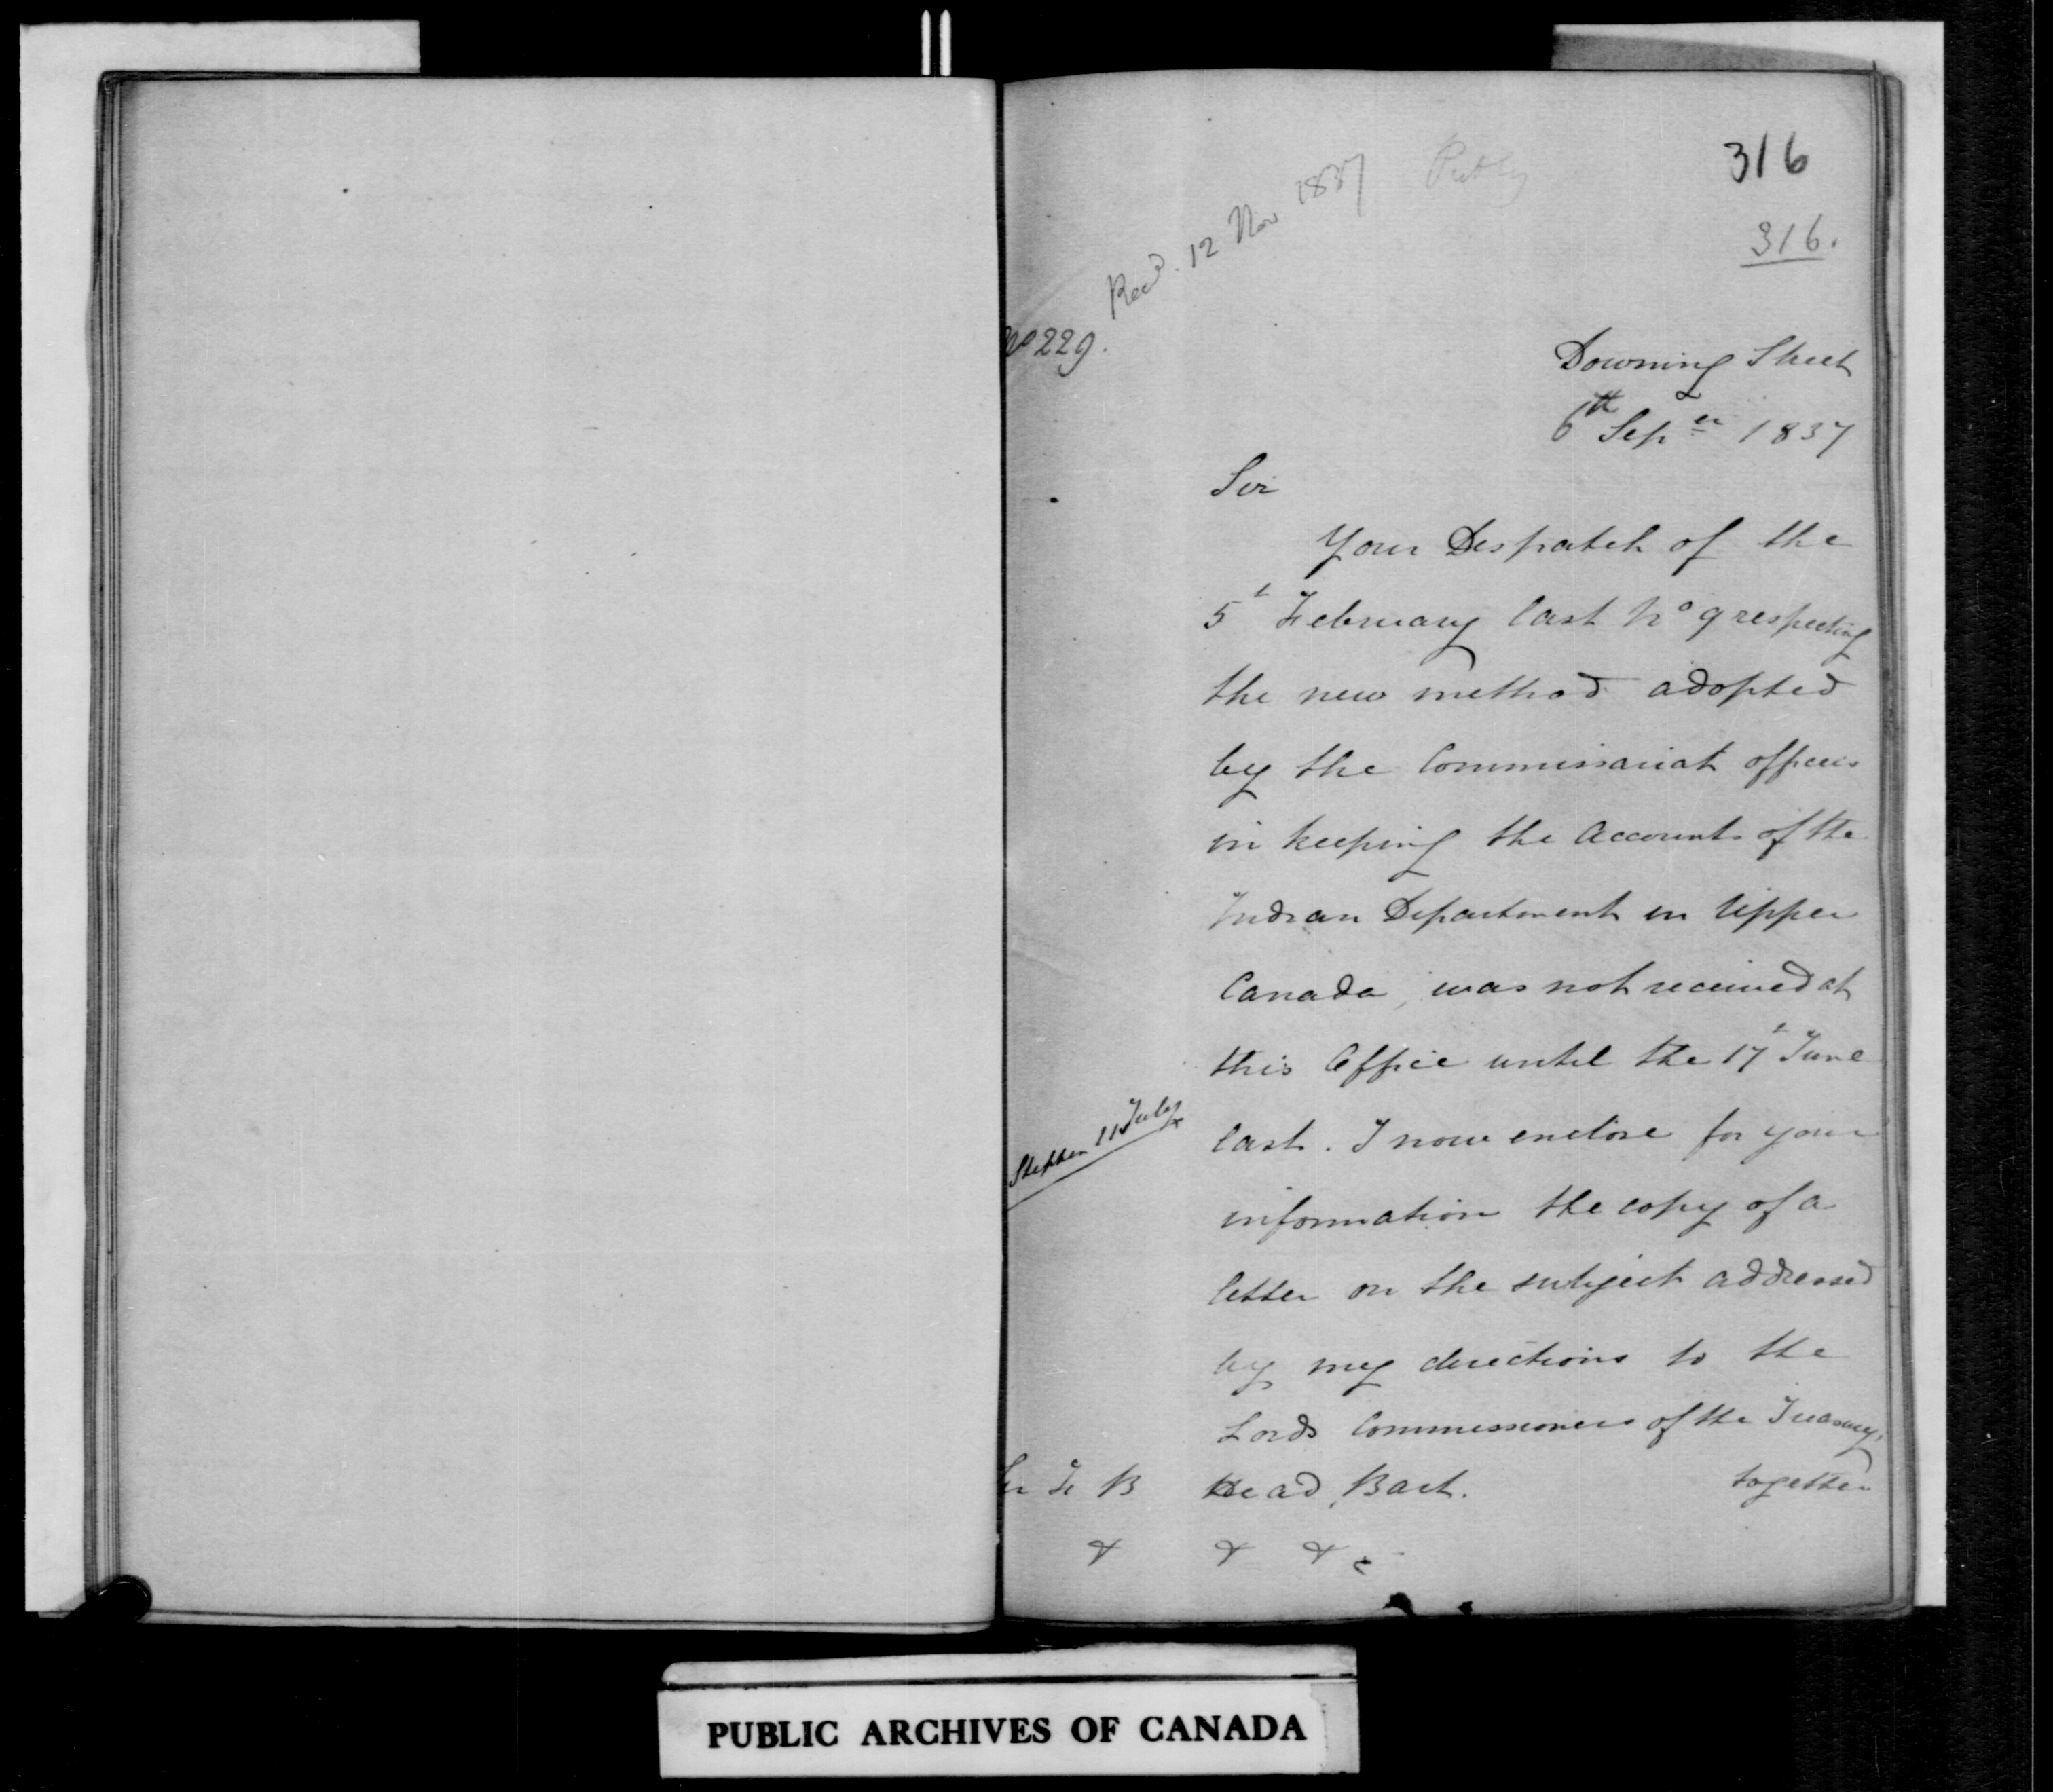 316
Recd. 12 Nov 1837
316.
No 229.
Downing Street
6th Seper 1837
Sir
Your Despatch of the
5t February last No 9 respecting
the new method adopted
by the Commissariat officers
in keeping the Accounts of the
Indian Department in Upper
Canada, was not received at
this Office until the 17t June
last. I now enclose for your
Stephen 11 July
information the copy of a
letter on the subject addressed
by my directions to the
Lords Commissioners of the Treasury,
together
Sir F B Head, Bart.
& & &c
PUBLIC ARCHIVES OF CANADA